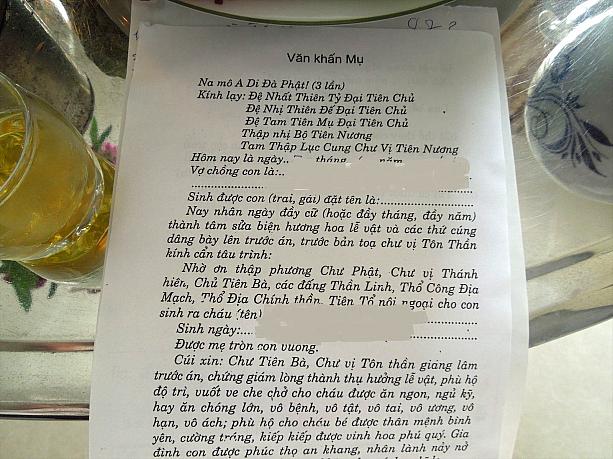 Văn khấn Mụ
Na mô A Di Đà Phật! (3 lần)
Kính lạy: Đệ Nhất Thiên Tỷ Đại Tiên Chủ
Đệ Nhị Thiên Đế Đại Tiên Chủ
Đệ Tam Tiên Mụ Đại Tiên Chủ
Thập nhị Bộ Tiên Nương
Tam Thập Lục Cung Chư Vị Tiên Nương
Hôm nay là ngày.. tháng năm
Vợ chồng con là:..
Sinh được con (trai, gái) đặt tên là:
Nay nhân ngày đầy cữ (hoặc đầy tháng, đầy năm)
thành tâm sửa biện hương hoa lễ vật và các thứ cúng
dâng bày lên trước án, trước bản toạ chư vị Tôn Thần
kính cẩn tâu trình:
Nhờ ơn thập phương Chư Phật, Chư vị Thánh
hiền, Chủ Tiên Bà, các đấng Thần Linh, Thổ Công Địa
Mạch, Thổ Địa Chính thần, Tiên Tổ nội ngoại cho con
sinh ra cháu (tên)
Sinh ngày:....
Được mẹ tròn con vuông.
Cúi xin: Chư Tiên Bà, Chư vị Tôn thần giáng lâm
trước án, chứng giám lòng thành thụ hưởng lễ vật, phù hộ
độ trì, vuốt ve che chở cho cháu được ăn ngon, ngủ kỹ,
hay ăn chóng lớn, vô bệnh, vô tật, vô tai, vô ương, vô
hạn, vô ách; phù hộ cho cháu bé được thân mệnh bình
yên, cường tráng, kiếp kiếp được vinh hoa phú quý. Gia
đình con được phúc thọ an khang, nhân lành nảy nở